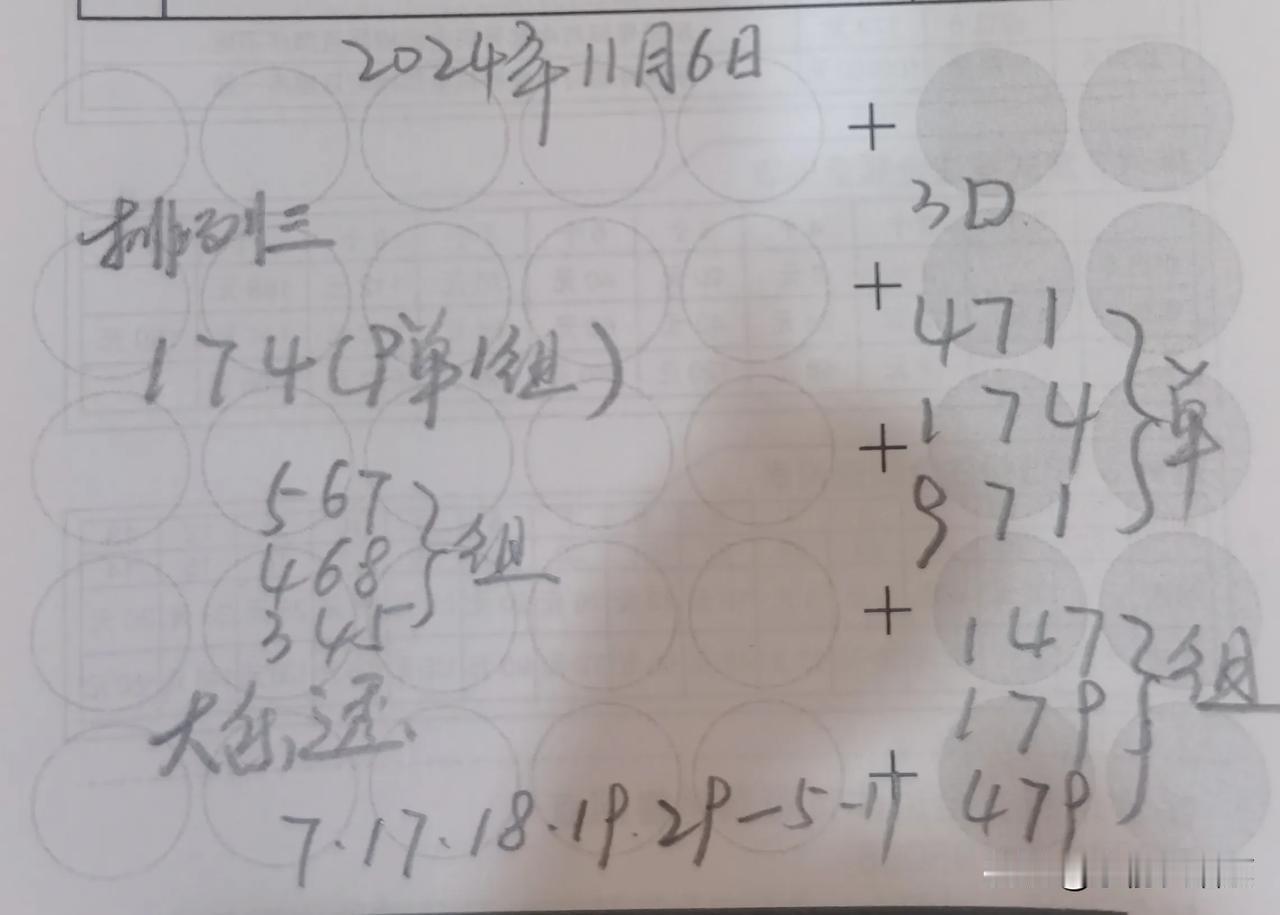 2024年11月6日
排列三
174(1单1组)
567
468
345
组
大乐透.
7.17.18.19.29-5-11
3D
471
174
971
单
147
179
479
组